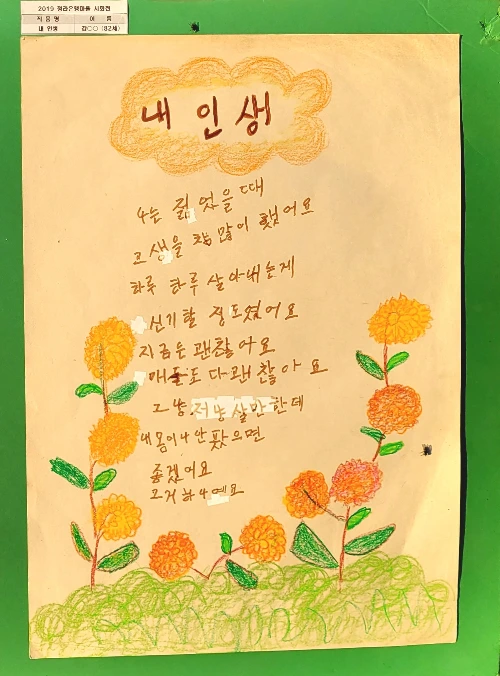 2019 청라은행마을 시화전
작 품 명 이 름
내 인생 강○○ (82세)
내 인생
나는 젊었을때
고생을 참 많이 했어요
하루 하루 살아내는게
신기할 정도였어요
지금은 괜찮아요
매들도 다괜찮아요
그냥저냥 살만한데
내몸이나 안 팠으면
좋겠어요
그거 하나예요